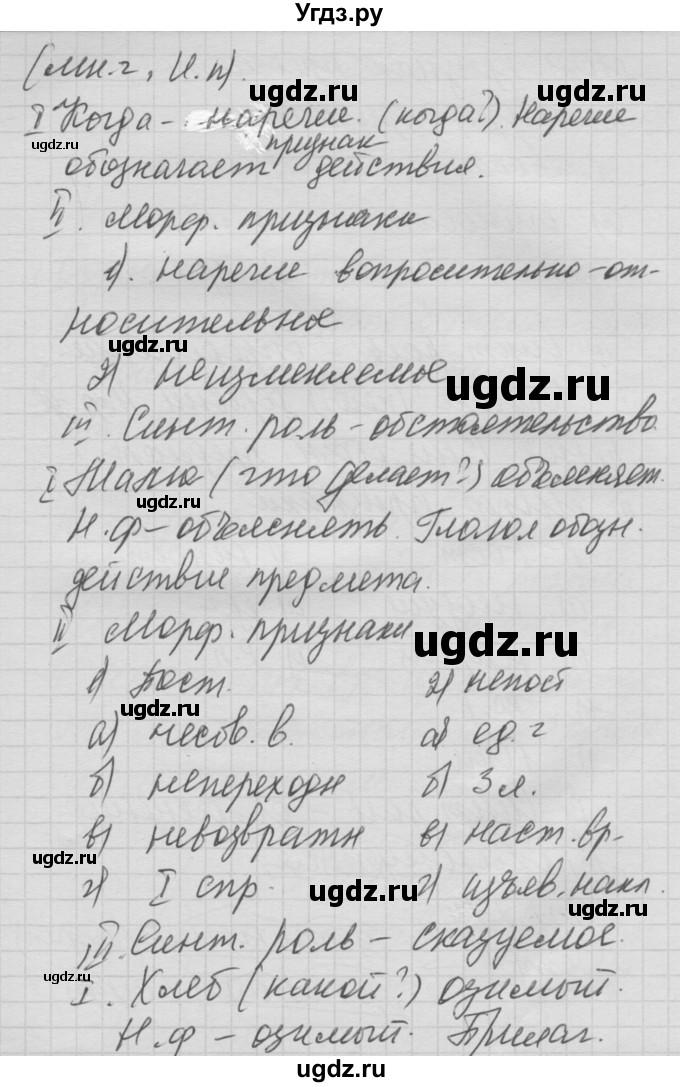 Угдз.ру
(мн.ч, И.п).
ugdz.ru
I Когда - наречие. (когда?). Наречие
ugdz.ru
признак
обозначает действия.
II. Морф. признаки
ugdz.ru
1). наречие вопросительно-от-
носительное
ugdz.ru
2) неизменяемые
ugdz.ru
III. Синт. роль - обстоятельство
I (что делает?) объясняет.
ugdz.ru
Н.ф - объяснять. Глагол обозн.
действие предмета.
II Морф. признаки
ugdz.ru
1) Пост. 2) непост
ugdz.ru
а) несов. в. а) ед. ч
б) непереходн б) 3 л.
в) невозвратн в) наст. вр-
ugdz.ru
г) I спр. г) изъяв. накл.
ugdz.ru
ugdz.ru
III. Синт. роль - сказуемое.
ugdz.ru
I. Хлеб (какой?) озимый.
Н.ф - озимый. Прилаг.
ugdz.ru